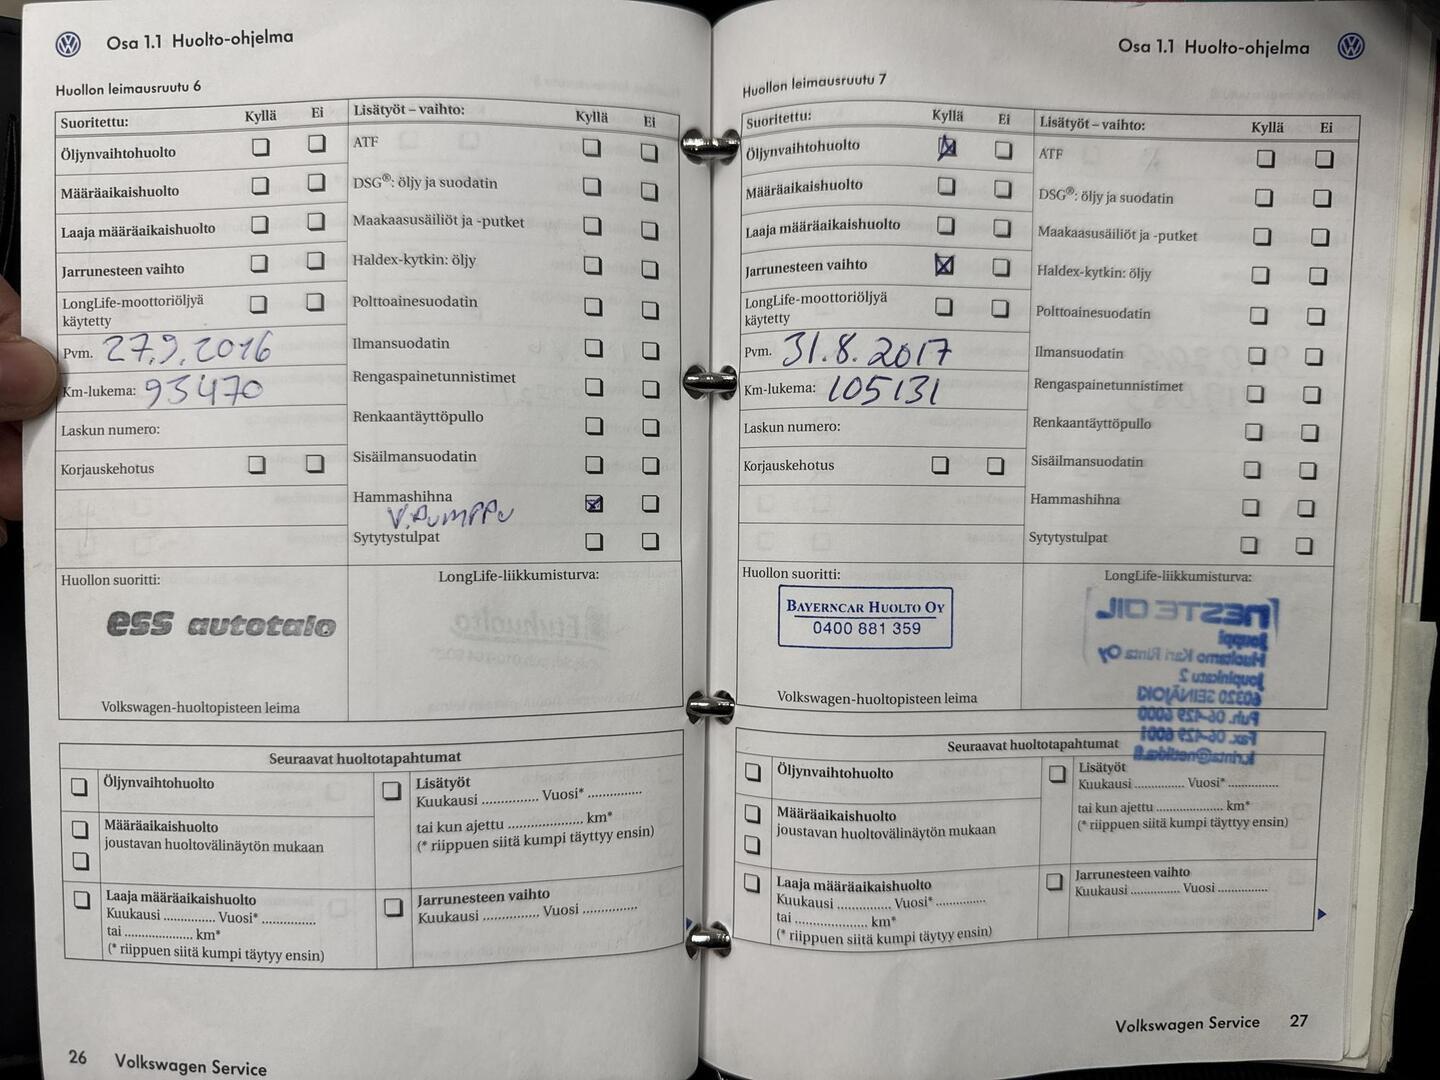 Osa 1.1 Huolto-ohjelma
Huollon leimausruutu 6
Suoritettu: Kyllä Ei
Öljynvaihtohuolto
Määräaikaishuolto
Laaja määräaikaishuolto
Jarrunesteen vaihto
LongLife-moottoriöljyä
käytetty
Pvm. 27.9.2016
Km-lukema: 93470
Laskun numero:
Korjauskehotus
Lisätyöt – vaihto: Kyllä Ei
ATF
DSG®: öljy ja suodatin
Maakaasusäiliöt ja -putket
Haldex-kytkin: öljy
Polttoainesuodatin
Ilmansuodatin
Rengaspainetunnistimet
Renkaantäyttöpullo
Sisäilmansuodatin
Hammashihna
V.PUMPPU
Sytytystulpat
Huollon suoritti:
ess autotalo
Volkswagen-huoltopisteen leima
LongLife-liikkumisturva:
Seuraavat huoltotapahtumat
Öljynvaihtohuolto
Määräaikaishuolto
joustavan huoltovälinäytön mukaan
Laaja määräaikaishuolto
Kuukausi .............. Vuosi* ..............
tai .................... km*
(* riippuen siitä kumpi täytyy ensin)
Lisätyöt
Kuukausi .............. Vuosi* ..............
tai kun ajettu .................... km*
(* riippuen siitä kumpi täytyy ensin)
Jarrunesteen vaihto
Kuukausi .............. Vuosi ..............
26 Volkswagen Service
Osa 1.1 Huolto-ohjelma
Huollon leimausruutu 7
Suoritettu: Kyllä Ei
Öljynvaihtohuolto
Määräaikaishuolto
Laaja määräaikaishuolto
Jarrunesteen vaihto
LongLife-moottoriöljyä
käytetty
Pvm. 31.8.2017
Km-lukema: 105131
Laskun numero:
Korjauskehotus
Lisätyöt – vaihto: Kyllä Ei
ATF
DSG®: öljy ja suodatin
Maakaasusäiliöt ja -putket
Haldex-kytkin: öljy
Polttoainesuodatin
Ilmansuodatin
Rengaspainetunnistimet
Renkaantäyttöpullo
Sisäilmansuodatin
Hammashihna
Sytytystulpat
Huollon suoritti:
BAYERNCAR HUOLTO OY
0400 881 359
Volkswagen-huoltopisteen leima
LongLife-liikkumisturva:
NESTE OIL
Jouppi
Huoltamo Kari Rinta Oy
Joupinkatu 2
60320 SEINÄJOKI
Puh. 06-429 6000
Fax. 06-429 6001
Seuraavat huoltotapahtumat
Öljynvaihtohuolto
Määräaikaishuolto
joustavan huoltovälinäytön mukaan
Laaja määräaikaishuolto
Kuukausi .............. Vuosi* ..............
tai .................... km*
(* riippuen siitä kumpi täytyy ensin)
Lisätyöt
Kuukausi .............. Vuosi* ..............
tai kun ajettu .................... km*
(* riippuen siitä kumpi täytyy ensin)
Jarrunesteen vaihto
Kuukausi .............. Vuosi ..............
Volkswagen Service 27